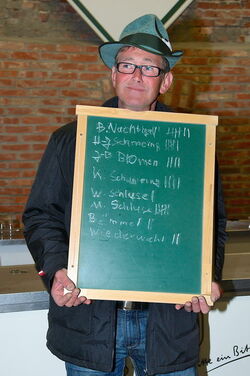 B. Nachtigall
H-J Schmeing
J-B Blömen
K. Schmeing
W. Schlüsel
M. Schlüsel
B. Ömmel
Wiederwicht
ein Bit